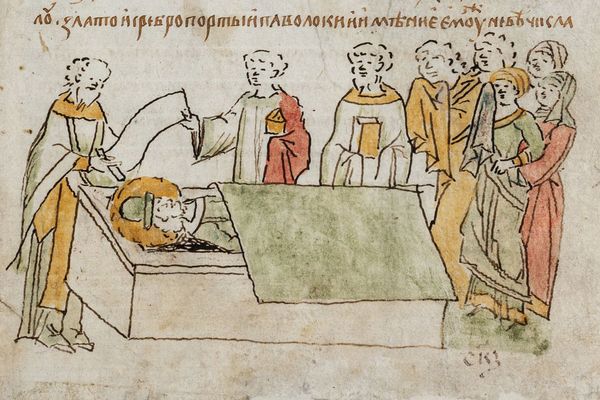 ло҃. злато и сребро порты и паволоки и имѣние ємоуⷤ не бѣ числа
скз